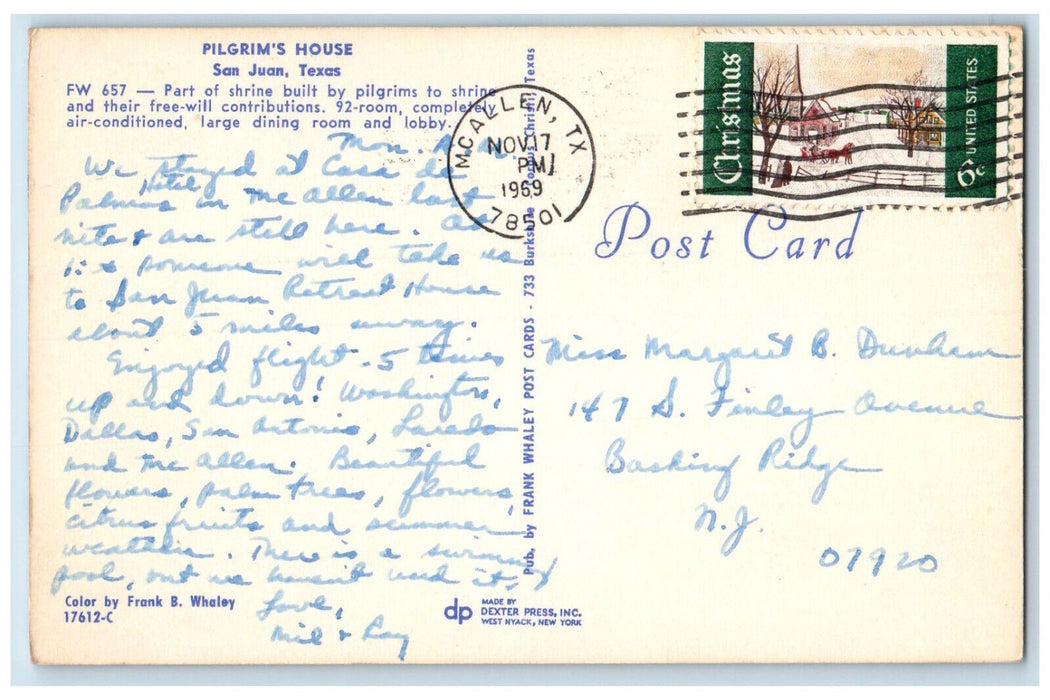 PILGRIM'S HOUSE
San Juan, Texas
FW 657 — Part of shrine built by pilgrims to shrine
and their free-will contributions. 92-room, completely
air-conditioned, large dining room and lobby.
Mon.
We stayed at Casa de
Palmas Hotel in McAllen last
nite & are still here.
someone will take us
to San Juan Retreat House
about 5 miles away.
Enjoyed flight - 5 times
up and down! Washington,
Dallas, San Antonio, Laredo
and McAllen. Beautiful
flowers, palm trees, flowers,
citrus fruits and summer
weather. There is a swimming
pool, but we haven't used it.
Love,
Mil & Ray
Color by Frank B. Whaley
17612-C
dp MADE BY
DEXTER PRESS, INC.
WEST NYACK, NEW YORK
Pub. by FRANK WHALEY POST CARDS - 733 Burkshire, Corpus Christi, Texas
MCALLEN, TX
NOV 17
PM
1969
78501
Christmas
6¢ UNITED STATES
Post Card
Miss Margaret B. Dunham
147 S. Finley Avenue
Basking Ridge
N.J.
07920